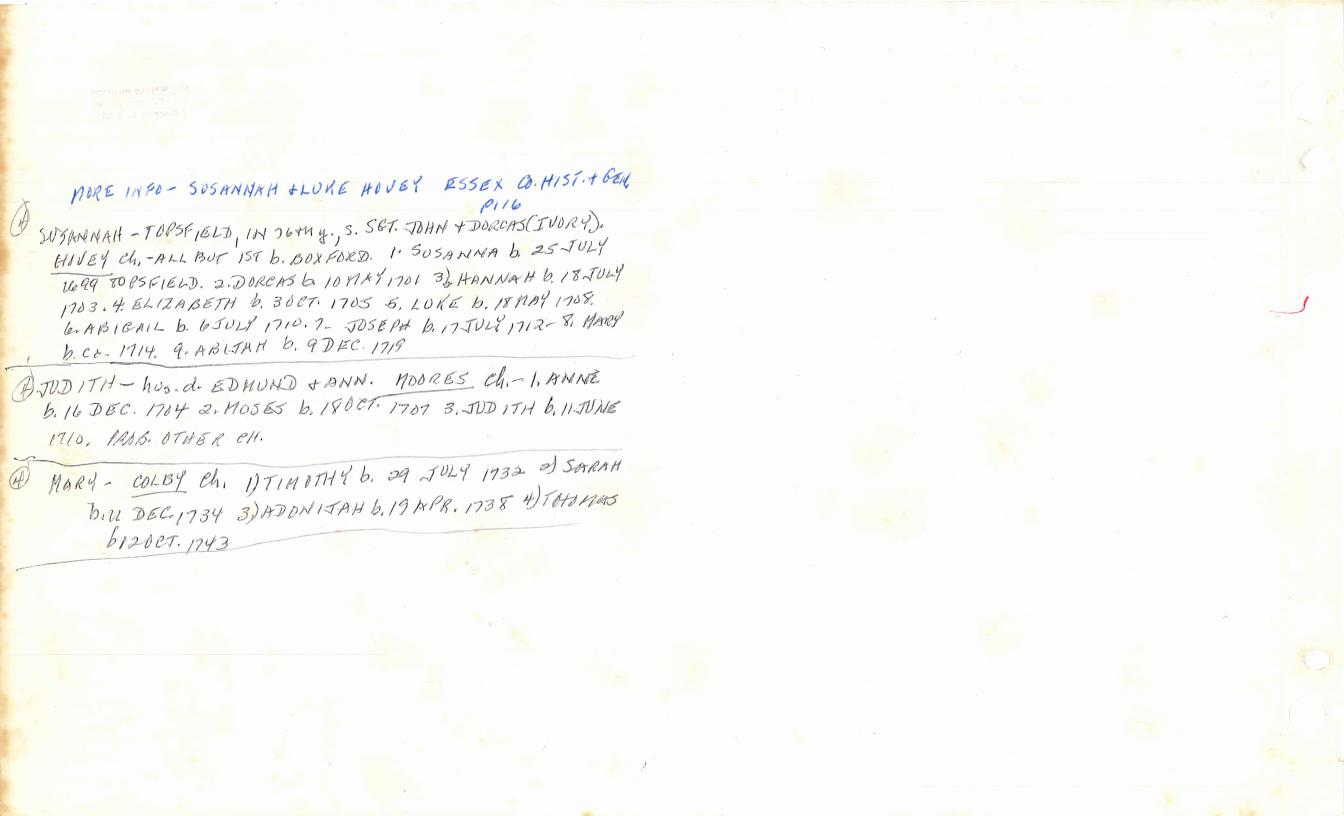 MORE INFO- SUSANNAH + LUKE HOVEY ESSEX CO. HIST. + GEN
P116
SUSANNAH - TOPSFIELD, IN 76th y., s. SGT. JOHN + DORCAS (IVORY).
HOVEY ch. - ALL BUT 1ST b. BOXFORD. 1. SUSANNA b. 25 JULY
1699 TOPSFIELD. 2. DORCAS b. 10 MAY 1701 3) HANNAH b. 18 JULY
1703. 4. ELIZABETH b. 3 OCT. 1705 5. LUKE b. 18 MAY 1708.
6. ABIGAIL b. 6 JULY 1710. 7- JOSEPH b. 17 JULY 1712- 8. MARY
b. Ca. 1714. 9. ABIJAH b. 9 DEC. 1719
JUDITH - hus. d. EDMUND + ANN. MOORES ch. - 1. ANNE
b. 16 DEC. 1704 2. MOSES b. 18 OCT. 1707 3. JUDITH b. 11 JUNE
1710. PROB. OTHER CH.
MARY - COLBY ch. 1) TIMOTHY b. 29 JULY 1732 2) SARAH
b. 11 DEC. 1734 3) ADONIJAH b. 19 APR. 1738 4) THOMAS
b 12 OCT. 1743